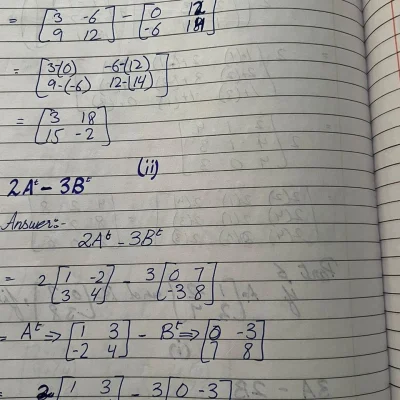 = [3 -6] - [0 12]
[9 12] [-6 ]
= [3-(0) -6-(12)]
[9-(-6) 12-(14)]
= [3 18]
[15 -2]
(ii)
2Aᵗ - 3Bᵗ
Answer:-
2Aᵗ - 3Bᵗ
= 2 [1 -2] - 3 [0 7]
[3 4] [-3 8]
= Aᵗ ⇒ [1 3] - Bᵗ ⇒ [0 -3]
[-2 4] [7 8]
= 2 [1 3] - 3 [0 -3]